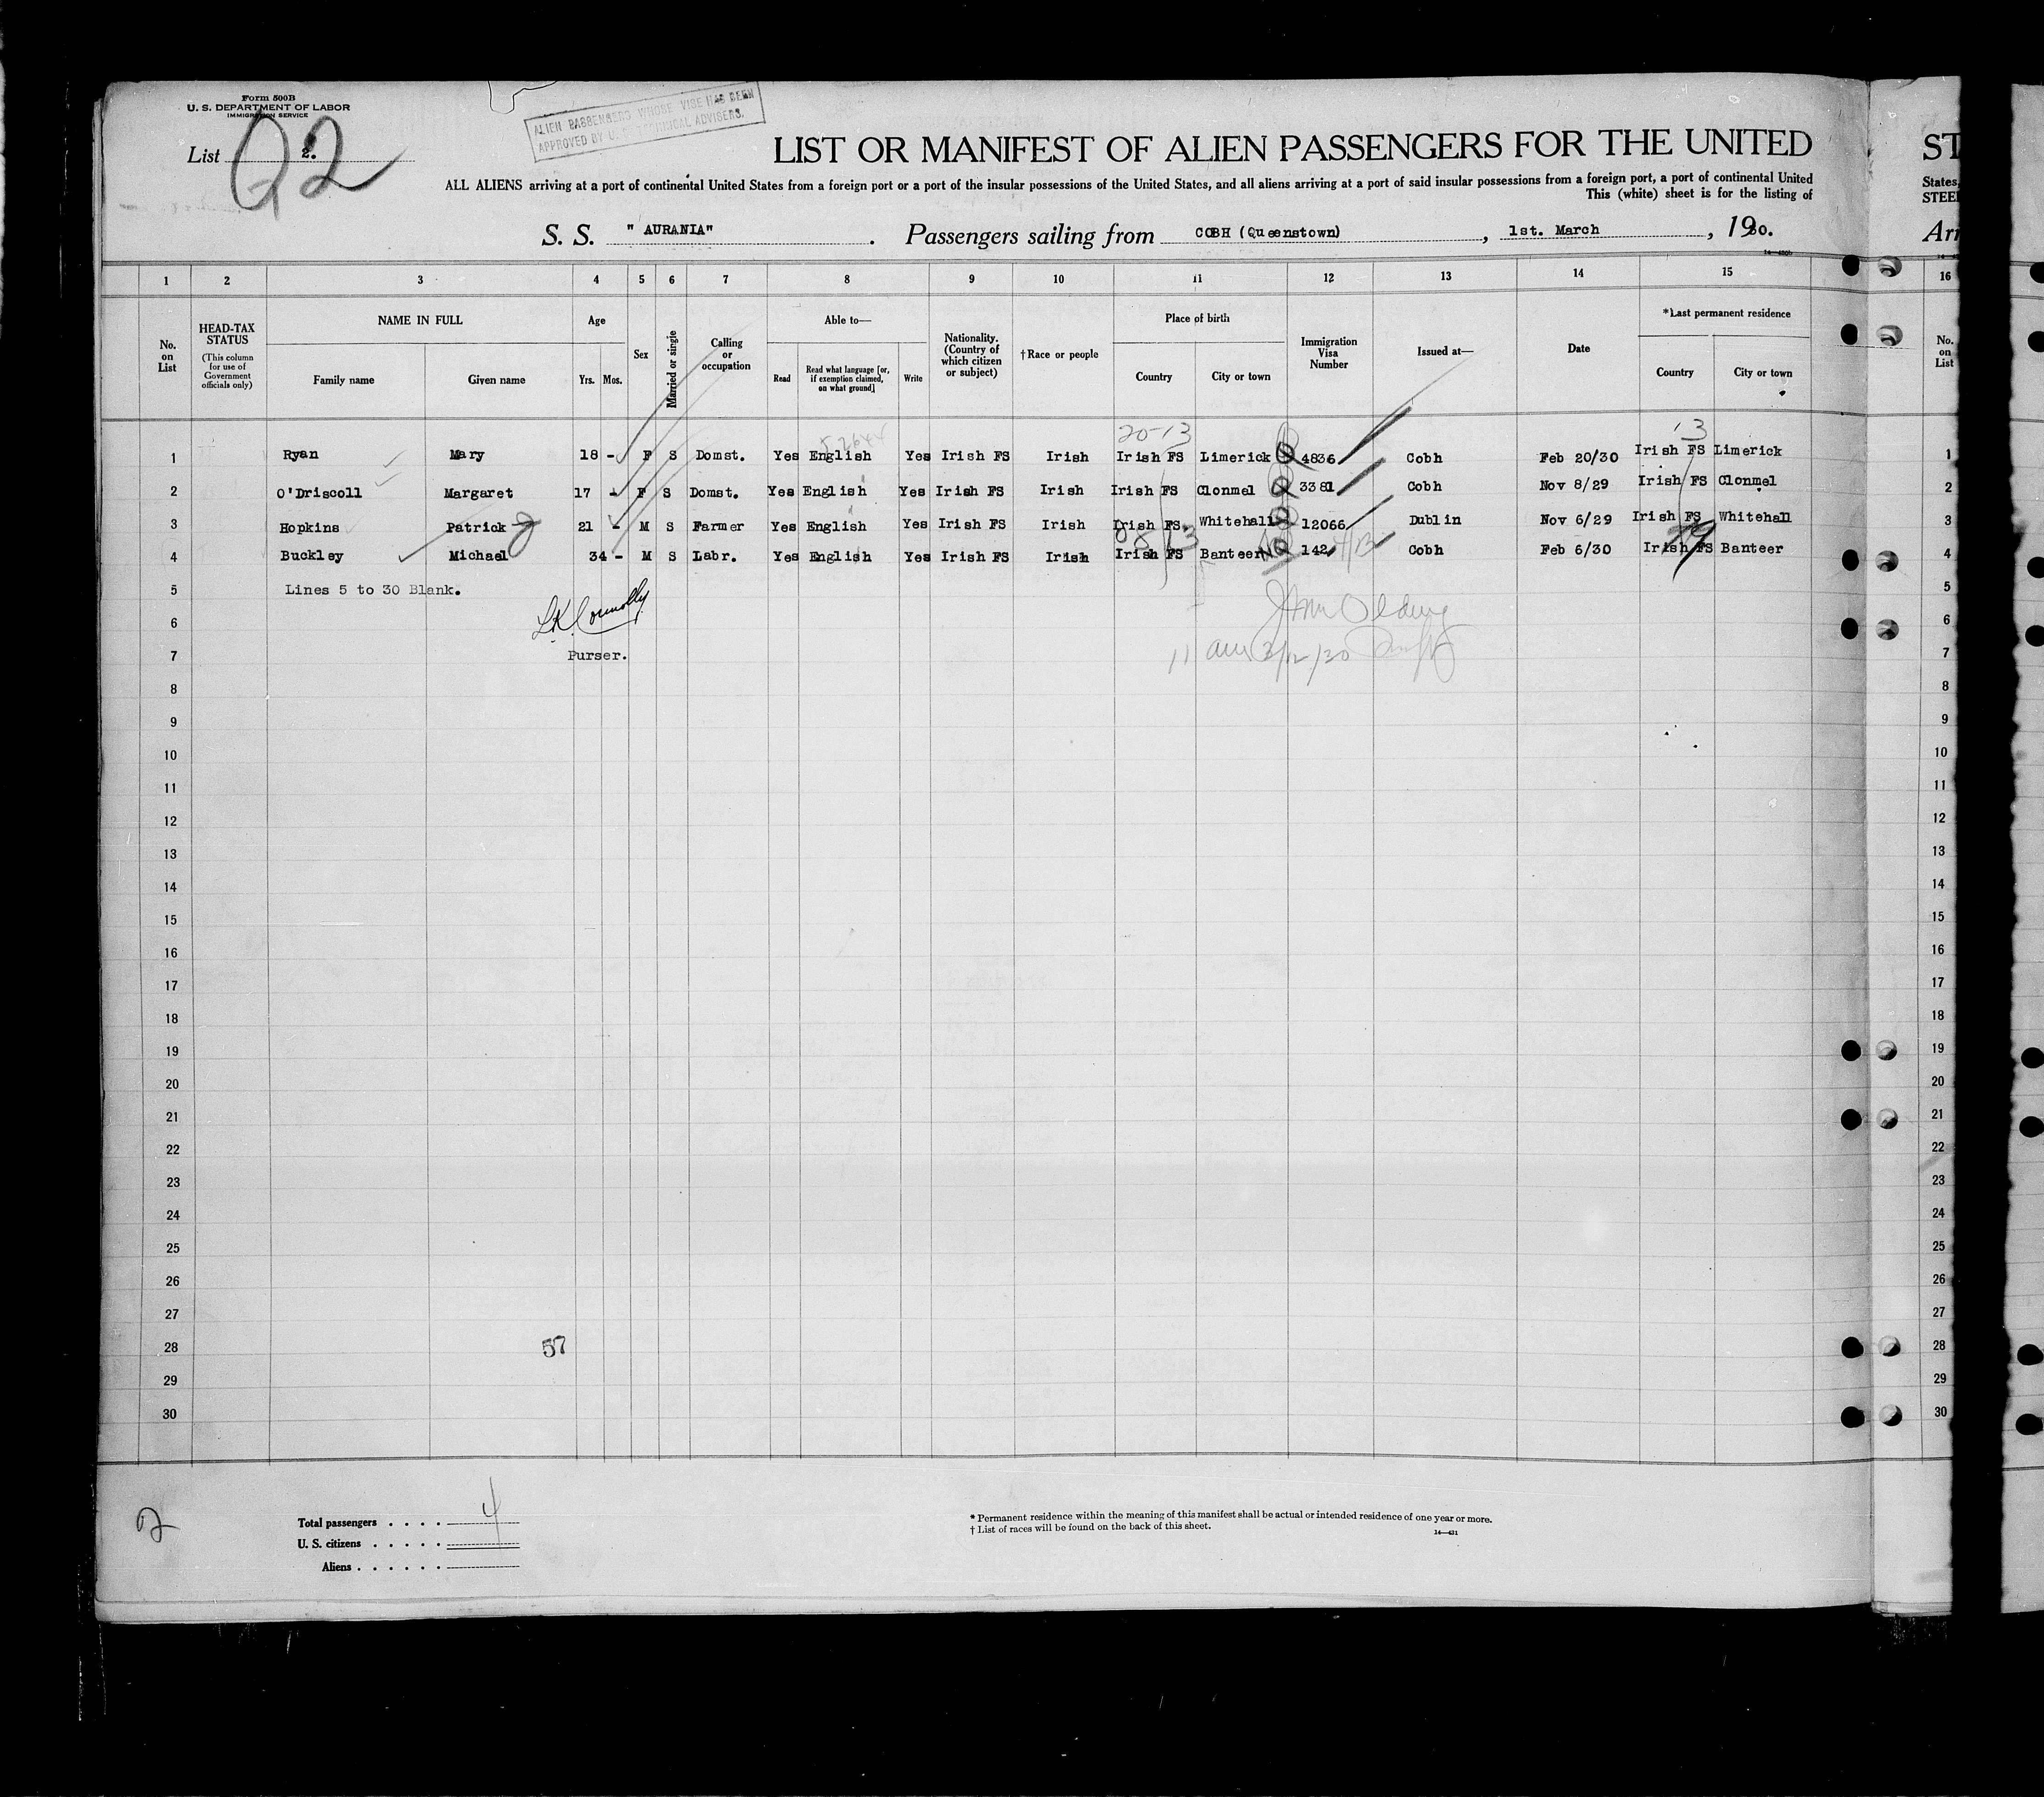 Form 500B
U. S. DEPARTMENT OF LABOR
IMMIGRATION SERVICE
List 2.
22
ALIEN PASSENGERS WHOSE VISE HAS BEEN
APPROVED BY U. S. TECHNICAL ADVISERS.
LIST OR MANIFEST OF ALIEN PASSENGERS FOR THE UNITED
ST
ALL ALIENS arriving at a port of continental United States from a foreign port or a port of the insular possessions of the United States, and all aliens arriving at a port of said insular possessions from a foreign port, a port of continental United
States,
This (white) sheet is for the listing of
STEE
S. S. "AURANIA". Passengers sailing from COBH (Queenstown), 1st. March, 1930.
Arr
1 2 3 4 5 6 7 8 9 10 11 12 13 14 15 16
No. on List
HEAD-TAX STATUS (This column for use of Government officials only)
NAME IN FULL
Family name
Given name
Age
Yrs. Mos.
Sex
Married or single
Calling or occupation
Able to—
Read
Read what language [or, if exemption claimed, on what ground]
Write
Nationality. (Country of which citizen or subject)
†Race or people
Place of birth
Country
City or town
Immigration Visa Number
Issued at—
Date
*Last permanent residence
Country
City or town
No. on List
20-13
13
1 Ryan Mary 18 - F S Domst. Yes English Yes Irish FS Irish Irish FS Limerick 4836 Cobh Feb 20/30 Irish FS Limerick 1
2 O'Driscoll Margaret 17 - F S Domst. Yes English Yes Irish FS Irish Irish FS Clonmel 3381 Cobh Nov 8/29 Irish FS Clonmel 2
3 Hopkins Patrick 21 - M S Farmer Yes English Yes Irish FS Irish Irish FS. Whitehall 12066 Dublin Nov 6/29 Irish FS Whitehall 3
4 Buckley Michael 34 - M S Labr. Yes English Yes Irish FS Irish Irish FS Banteer 142 Cobh Feb 6/30 Irish FS Banteer 4
5 Lines 5 to 30 Blank. 5
6 L.K. Connolly 6
7 Purser. 11 am 3/12/30 7
8 8
9 9
10 10
11 11
12 12
13 13
14 14
15 15
16 16
17 17
18 18
19 19
20 20
21 21
22 22
23 23
24 24
25 25
26 26
27 27
28 57 28
29 29
30 30
2
Total passengers . . . . 4
U. S. citizens . . . . .
Aliens . . . . . .
* Permanent residence within the meaning of this manifest shall be actual or intended residence of one year or more.
† List of races will be found on the back of this sheet.
14—431